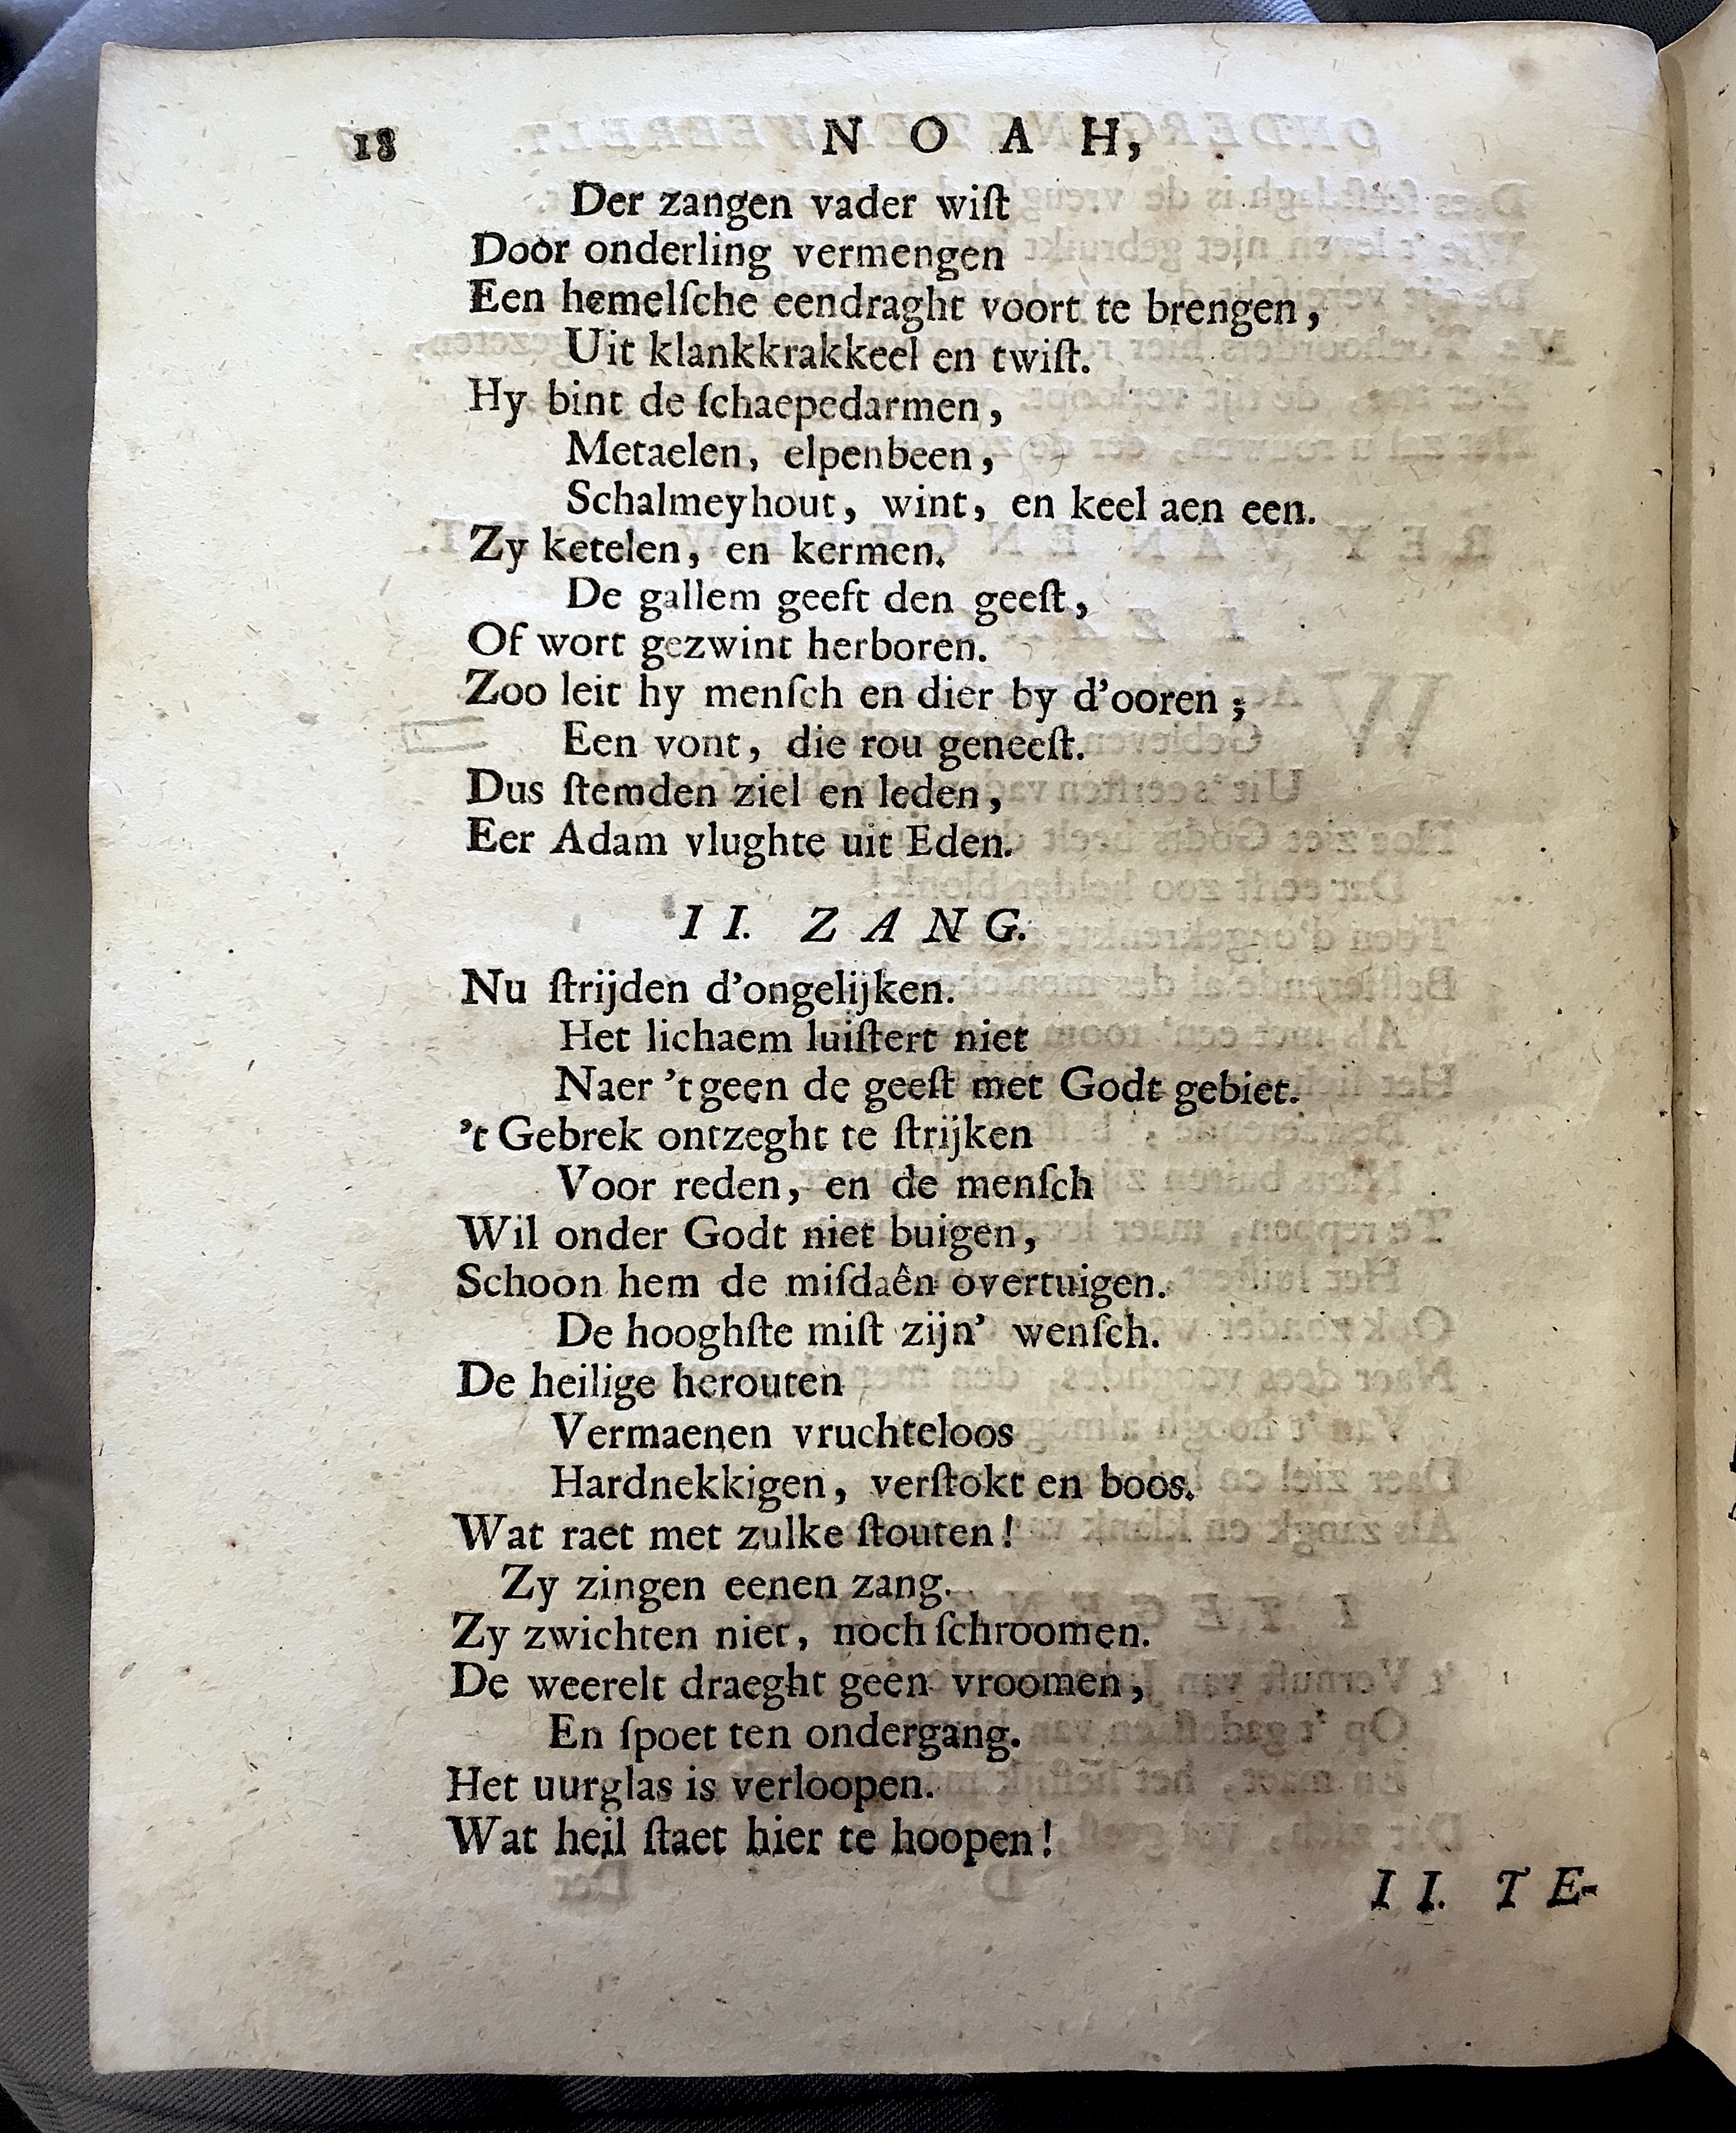 18 NOAH,
Der zangen vader wiſt
Door onderling vermengen
Een hemelſche eendraght voort te brengen,
Uit klankkrakkeel en twiſt.
Hy bint de ſchaepedarmen,
Metaelen, elpenbeen,
Schalmeyhout, wint, en keel aen een.
Zy ketelen, en kermen.
De gallem geeft den geeſt,
Of wort gezwint herboren.
Zoo leit hy menſch en dier by d'ooren;
Een vont, die rou geneeſt.
Dus ſtemden ziel en leden,
Eer Adam vlughte uit Eden.
II. ZANG.
Nu ſtrijden d'ongelijken.
Het lichaem luiſtert niet
Naer 't geen de geeſt met Godt gebiet.
't Gebrek ontzeght te ſtrijken
Voor reden, en de menſch
Wil onder Godt niet buigen,
Schoon hem de miſdaên overtuigen.
De hooghſte miſt zijn' wenſch.
De heilige herouten
Vermaenen vruchteloos
Hardnekkigen, verſtokt en boos.
Wat raet met zulke ſtouten!
Zy zingen eenen zang.
Zy zwichten niet, noch ſchroomen.
De weerelt draeght geen vroomen,
En ſpoet ten ondergang.
Het uurglas is verloopen.
Wat heil ſtaet hier te hoopen!
II. TE-